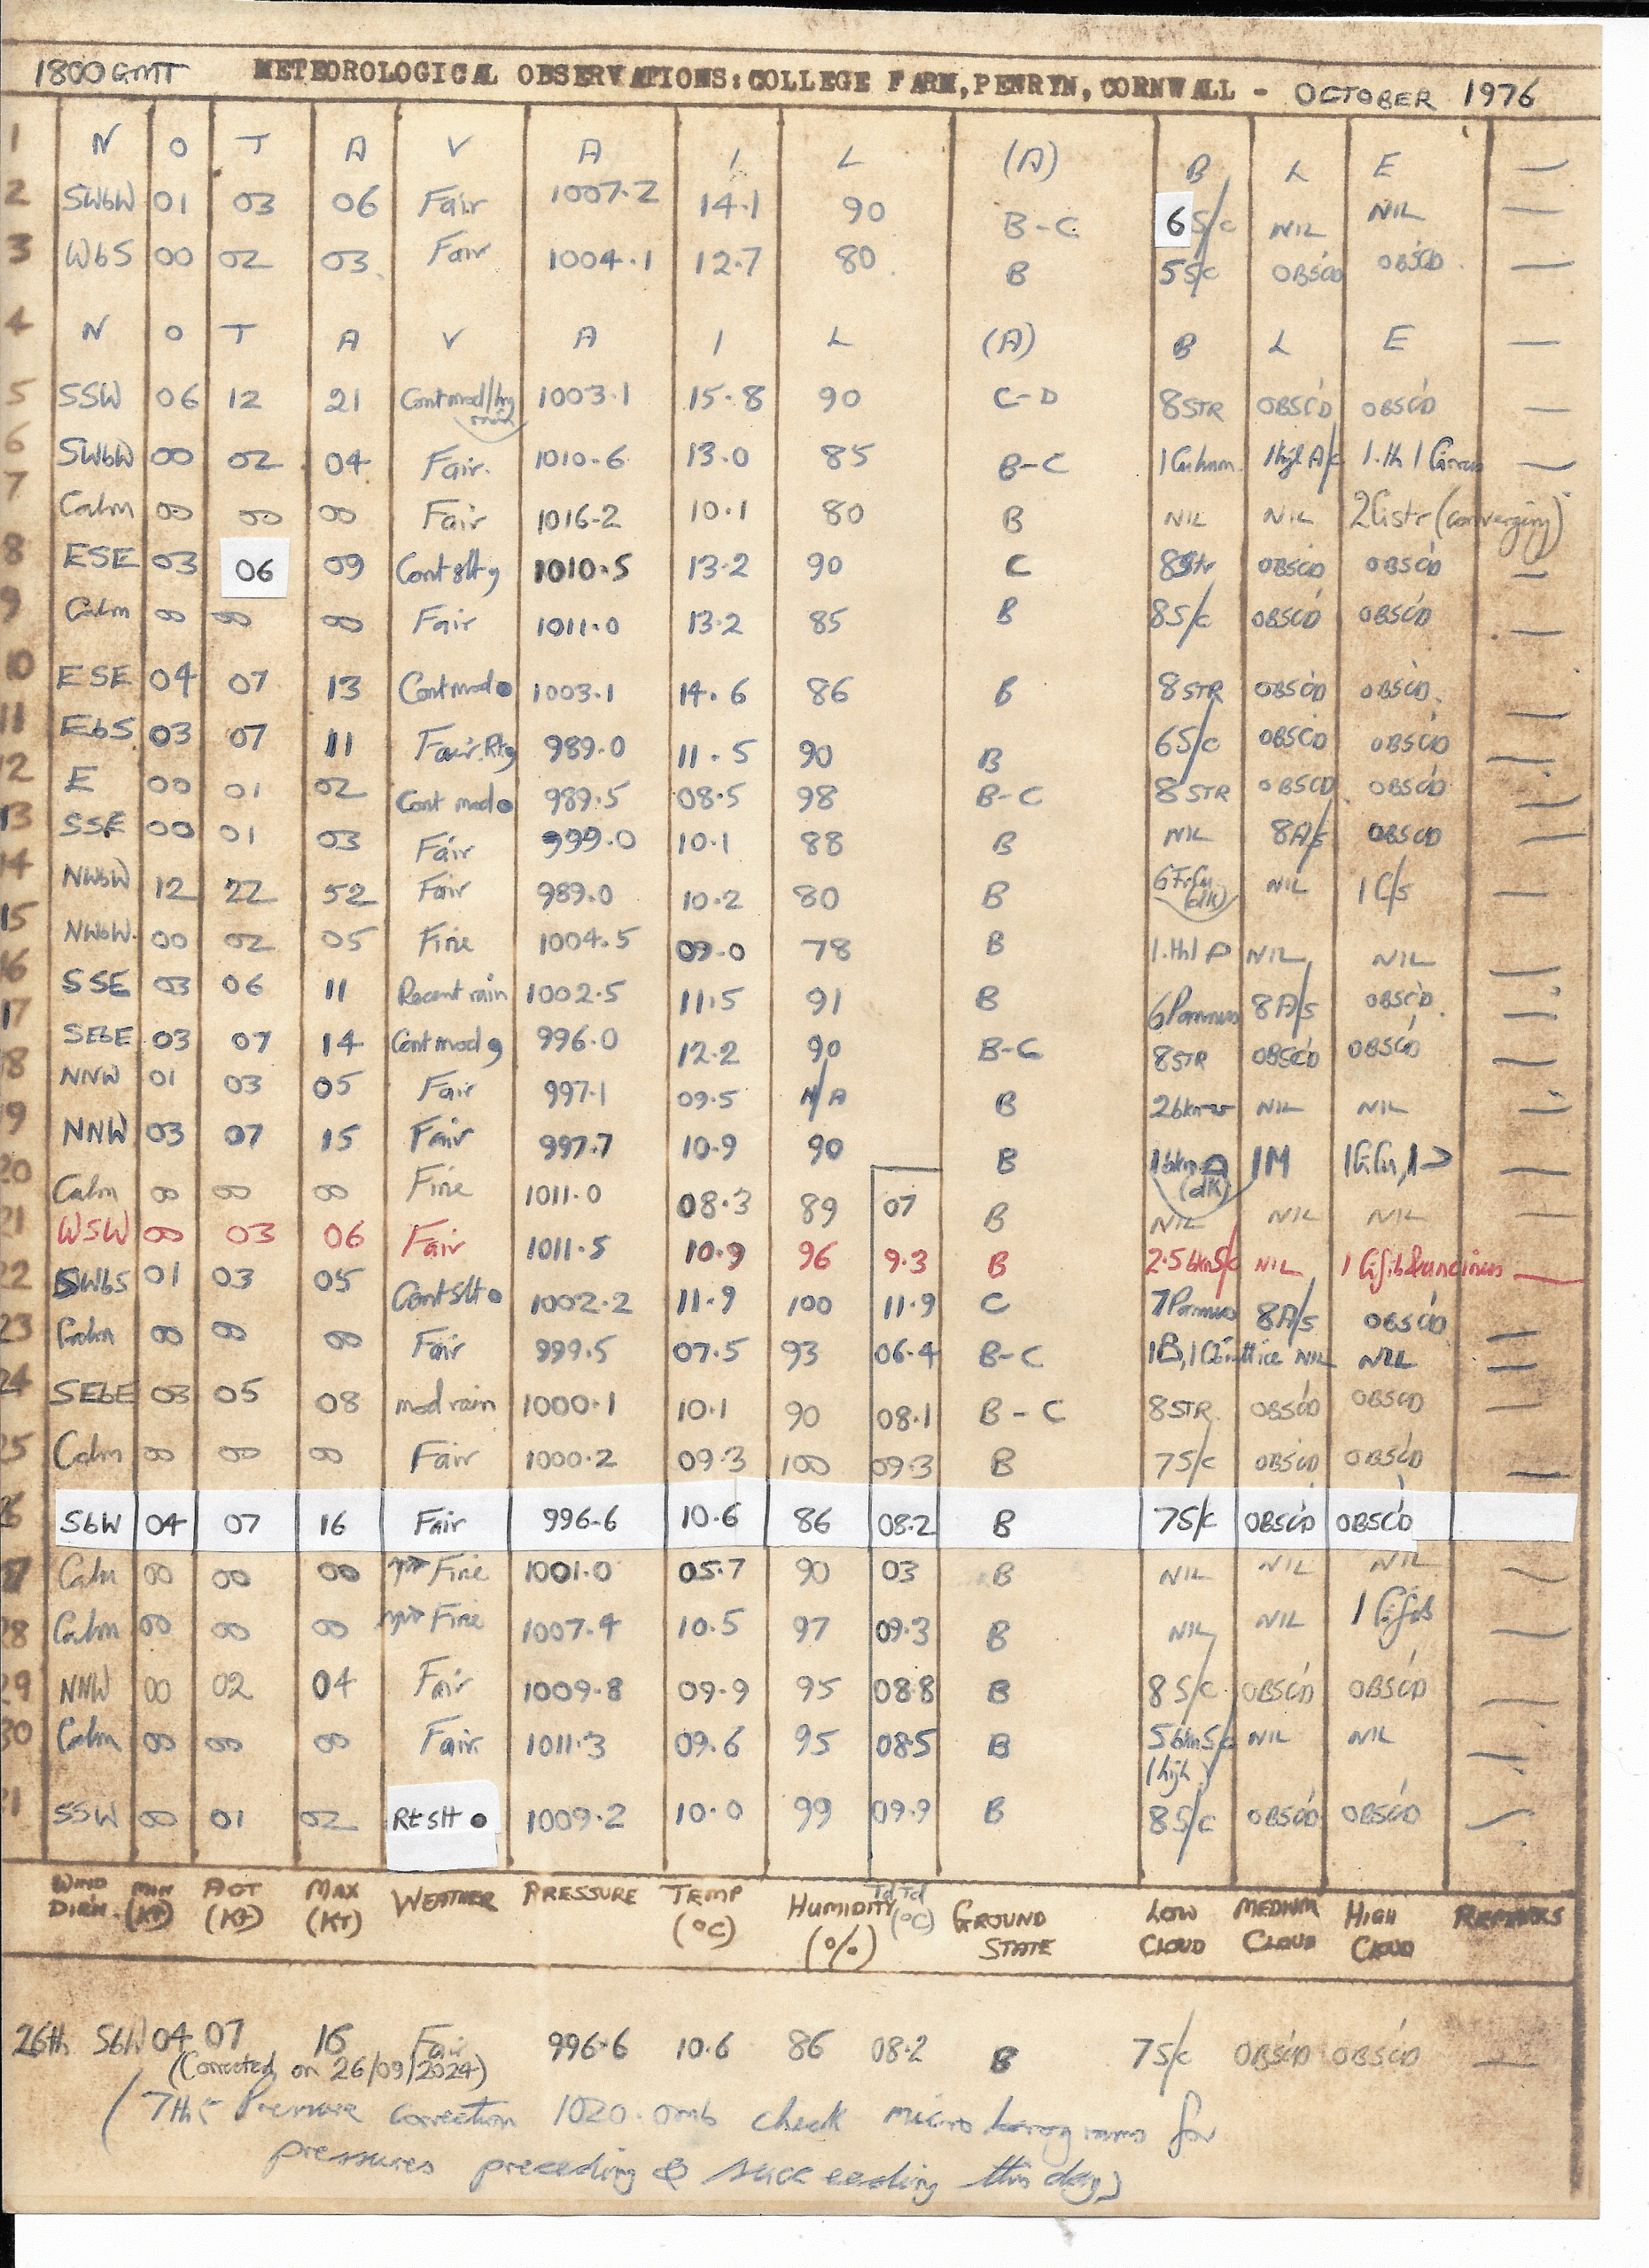 1800 GMT METEOROLOGICAL OBSERVATIONS: COLLEGE FARM, PENRYN, CORNWALL - OCTOBER 1976
1 N O T A V A I L (A) B L E —
2 SWbW 01 03 06 Fair 1007.2 14.1 90 B-C 6 S/c NIL NIL —
3 WbS 00 02 03 Fair 1004.1 12.7 80 B 5 S/c OBSC'D OBSC'D —
4 N O T A V A I L (A) B L E —
5 SSW 06 12 21 Cont mod/hvy rain 1003.1 15.8 90 C-D 8 STR OBSC'D OBSC'D —
6 SWbW 00 02 04 Fair 1010.6 13.0 85 B-C 1 Cu hum. 1 high A/c 1.th 1 Cirrus —
7 Calm 00 00 00 Fair 1016.2 10.1 80 B NIL NIL 2 Cistr (converging)
8 ESE 03 06 09 Cont slt 1010.5 13.2 90 C 8 Str OBSC'D OBSC'D —
9 Calm 00 00 00 Fair 1011.0 13.2 85 B 8 S/c OBSC'D OBSC'D —
10 ESE 04 07 13 Cont mod ● 1003.1 14.6 86 B 8 STR OBSC'D OBSC'D —
11 EbS 03 07 11 Fair. 989.0 11.5 90 B 6 S/c OBSC'D OBSC'D —
12 E 00 01 02 Cont mod ● 989.5 08.5 98 B-C 8 STR OBSCD OBSC'D —
13 SSE 00 01 03 Fair 999.0 10.1 88 B NIL 8 A/s OBSCD —
14 NWbW 12 22 52 Fair 989.0 10.2 80 B 6 FrCu (dk) NIL 1 C/s —
15 NWbW. 00 02 05 Fine 1004.5 09.0 78 B NIL NIL —
16 SSE 03 06 11 Recent rain 1002.5 11.5 91 B 6 Pannus 8 A/s OBSC'D —
17 SEbE 03 07 14 Cont mod 996.0 12.2 90 B-C 8 STR OBSC'D OBSC'D —
18 NNW 01 03 05 Fair 997.1 09.5 N/A B 2 bkn NIL NIL —
19 NNW 03 07 15 Fair 997.7 10.9 90 B 1 bkn (dk) 1M —
20 Calm 00 00 00 Fine 1011.0 08.3 89 07 B NIL NIL NIL —
21 WSW 00 03 06 Fair 1011.5 10.9 96 9.3 B 2.5 bknS/c NIL 1 Ci fib & uncinus —
22 SWbS 01 03 05 Cont Slt ● 1002.2 11.9 100 11.9 C 7 Pannus 8 A/s OBSC'D —
23 Calm 00 00 00 Fair 999.5 07.5 93 06.4 B-C NIL NIL —
24 SEbE 03 05 08 mod rain 1000.1 10.1 90 08.1 B-C 8 STR. OBSC'D OBSC'D —
25 Calm 00 00 00 Fair 1000.2 09.3 100 09.3 B 7 S/c OBSC'D OBSC'D —
26 SbW 04 07 16 Fair 996.6 10.6 86 08.2 B 7 S/c OBSC'D OBSC'D
27 Calm 00 00 00 Fine 1001.0 05.7 90 03 B NIL NIL NIL —
28 Calm 00 00 00 Fine 1007.4 10.5 97 09.3 B NIL NIL 1 Ci fib —
29 NNW 00 02 04 Fair 1009.8 09.9 95 08.8 B 8 S/c OBSC'D OBSC'D —
30 Calm 00 00 00 Fair 1011.3 09.6 95 08.5 B 5 bkn S/c (high) NIL NIL —
31 SSW 00 01 02 Rt Slt ● 1009.2 10.0 99 09.9 B 8 S/c OBSC'D OBSC'D —
WIND DIR'N. MIN (KT) ACT (KT) MAX (KT) WEATHER PRESSURE TEMP (°C) HUMIDITY (%) Td Td (°C) GROUND STATE LOW CLOUD MEDIUM CLOUD HIGH CLOUD REMARKS
26th SbW 04 07 16 Fair 996.6 10.6 86 08.2 B 7 S/c OBSC'D OBSC'D —
(Corrected on 26/09/2024)
(7th:- Pressure correction 1020.0mb check micro barograms for
pressures preceding & succeeding this day)